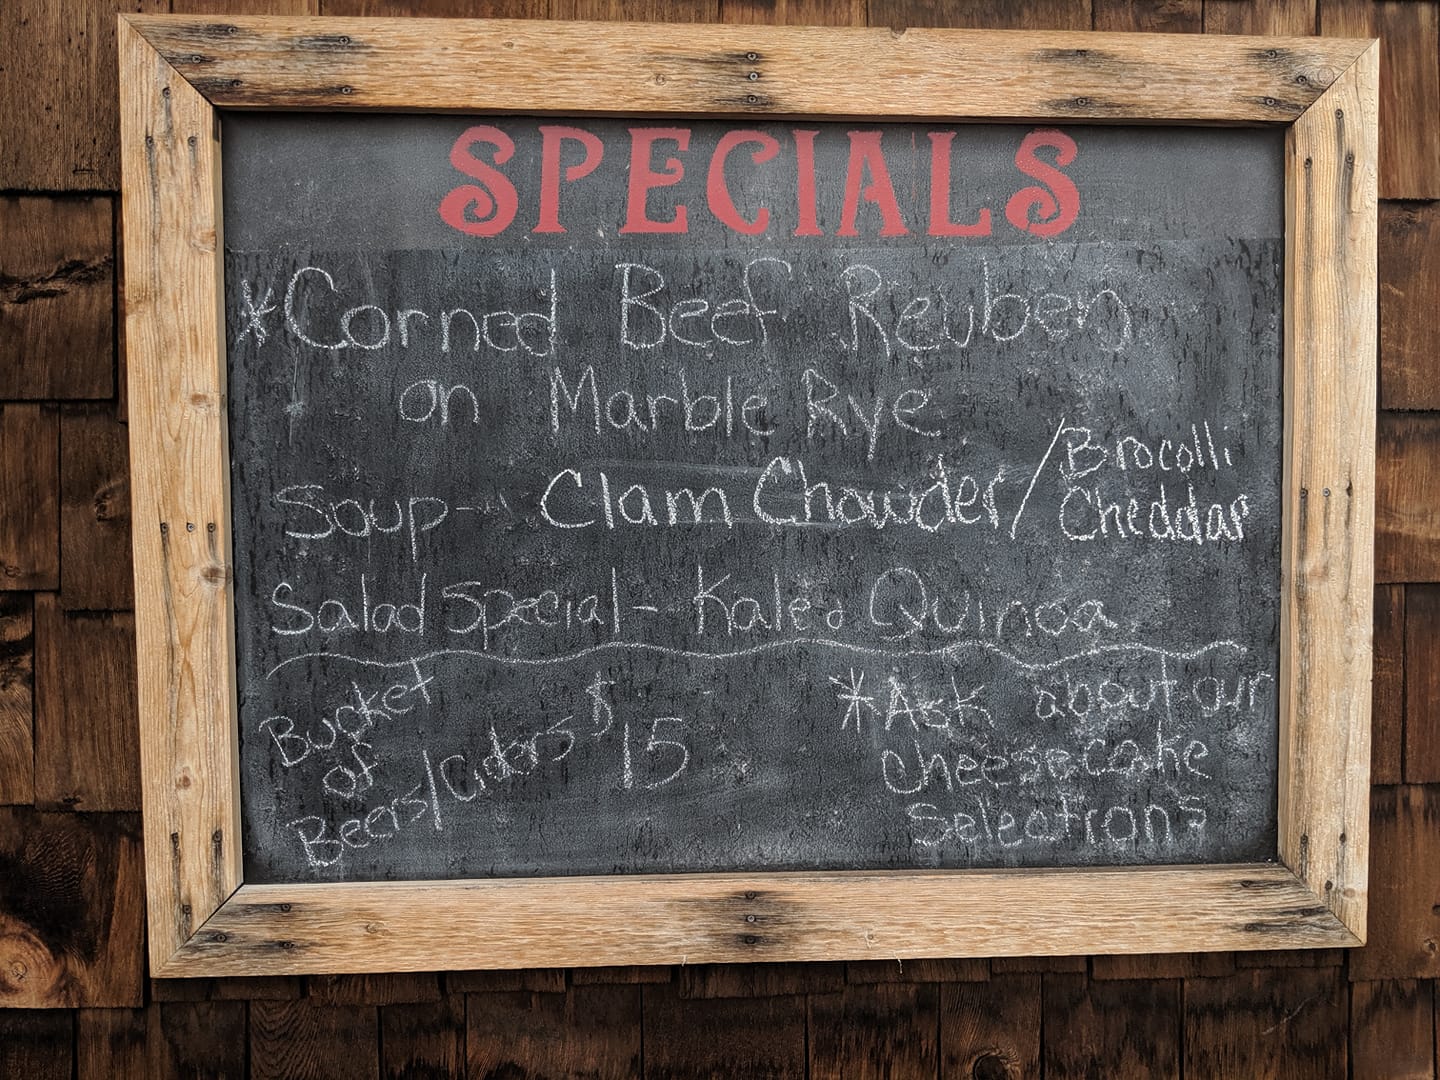 SPECIALS
*Corned Beef Reuben
on Marble Rye
Soup - Clam Chowder / Brocolli
Cheddar
Salad Special - Kale & Quinoa
Bucket
of
Beers/Ciders $15
*Ask about our
cheesecake
selections